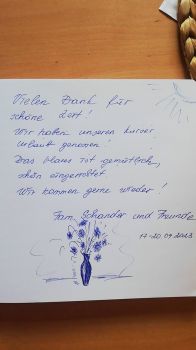 Vielen Dank für
schöne Zeit!
Wir haben unseren kurzen
Urlaub genossen!
Das Haus ist gemütlich,
schön eingerichtet.
Wir kommen gerne wieder!
Fam. Schander und Freunde
17-20.09.2023